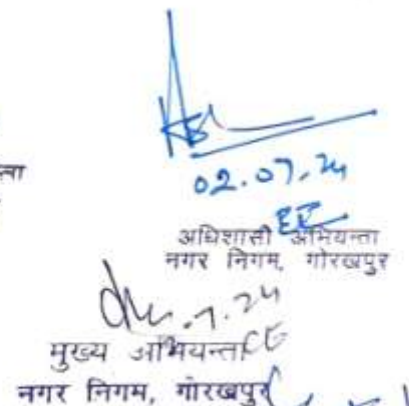 02.07.24
EE
अधिशासी अभियन्ता
नगर निगम, गोरखपुर
.7.24
मुख्य अभियन्ता CE
नगर निगम, गोरखपुर